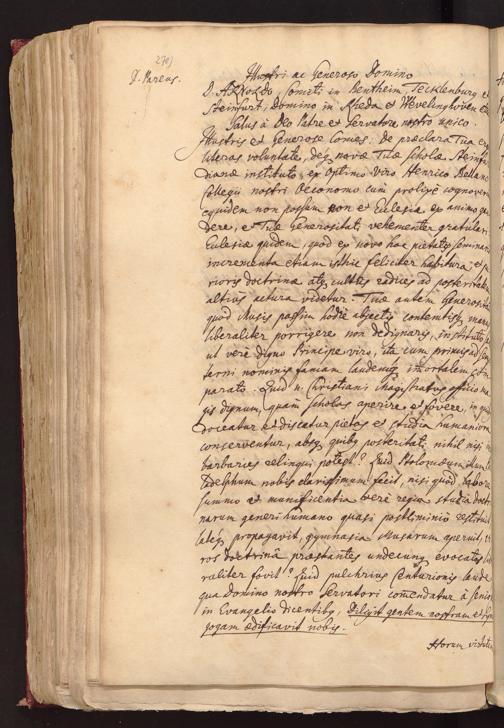 270)
D. Pareus.
Illustri ac Generoso Domino
D. ARNOLDO, Comiti in Bentheim, Tecklenburg et
Steinfurt, Domino in Rheda et Wevelinghoven etc.
Salus à Deo Patre et Servatore nostro unico.
Illustris et Generose Comes. De praeclara Tua erga
literas voluntate, deq; novae Tuae Scholae Steinfur
dianae instituto, ex optimo viro Henrico
Collegii nostri Oeconomo cum prolixè cognoverim
equidem non possum non et Ecclesiae ex animo gau
dere, et Tuae Generositati vehementer gratulari.
Ecclesiae quidem, quod ex novo hoc pietatis seminario
incrementa etiam isthic feliciter habitura, et
rioris doctrinae atq; cultus radices ad posteritatem
altius actura videtur: Tuae autem Generositati
quod Musis passim hodie abjectis contentisq; manum
liberaliter porrigere non dedignaris, instituto
ut verè digno Principe viro, ita cum primis ad
terni nominis famam laudemq; immortalem com
parato. Quid n. Christiani Magistratus officio ma
gis dignum, quàm scholas aperire et fovere, in quib
doceatur et discatur pietas et studia humaniora
conserventur, absq; quib; posteritati nihil nisi
barbaries relinqui potest? Quid Ptolomaeum
ladelphum nobis clarissimum fecit, nisi quod labore
summo et munificentia verè regia studia doctri
narum generi humano quasi postliminio restituit
latéq; propagavit, gymnasia Musarum aperuit, vi
ros doctrinâ praestantes undecunq; evocatos li
beraliter fovit? Quid pulchrius Centurionis laude
qua Domino nostro Servatori comendatur à Seniorib
in Evangelio dicentibus, Diligit gentem nostram et Syna
gogam aedificavit nobis.
Horum vestigia